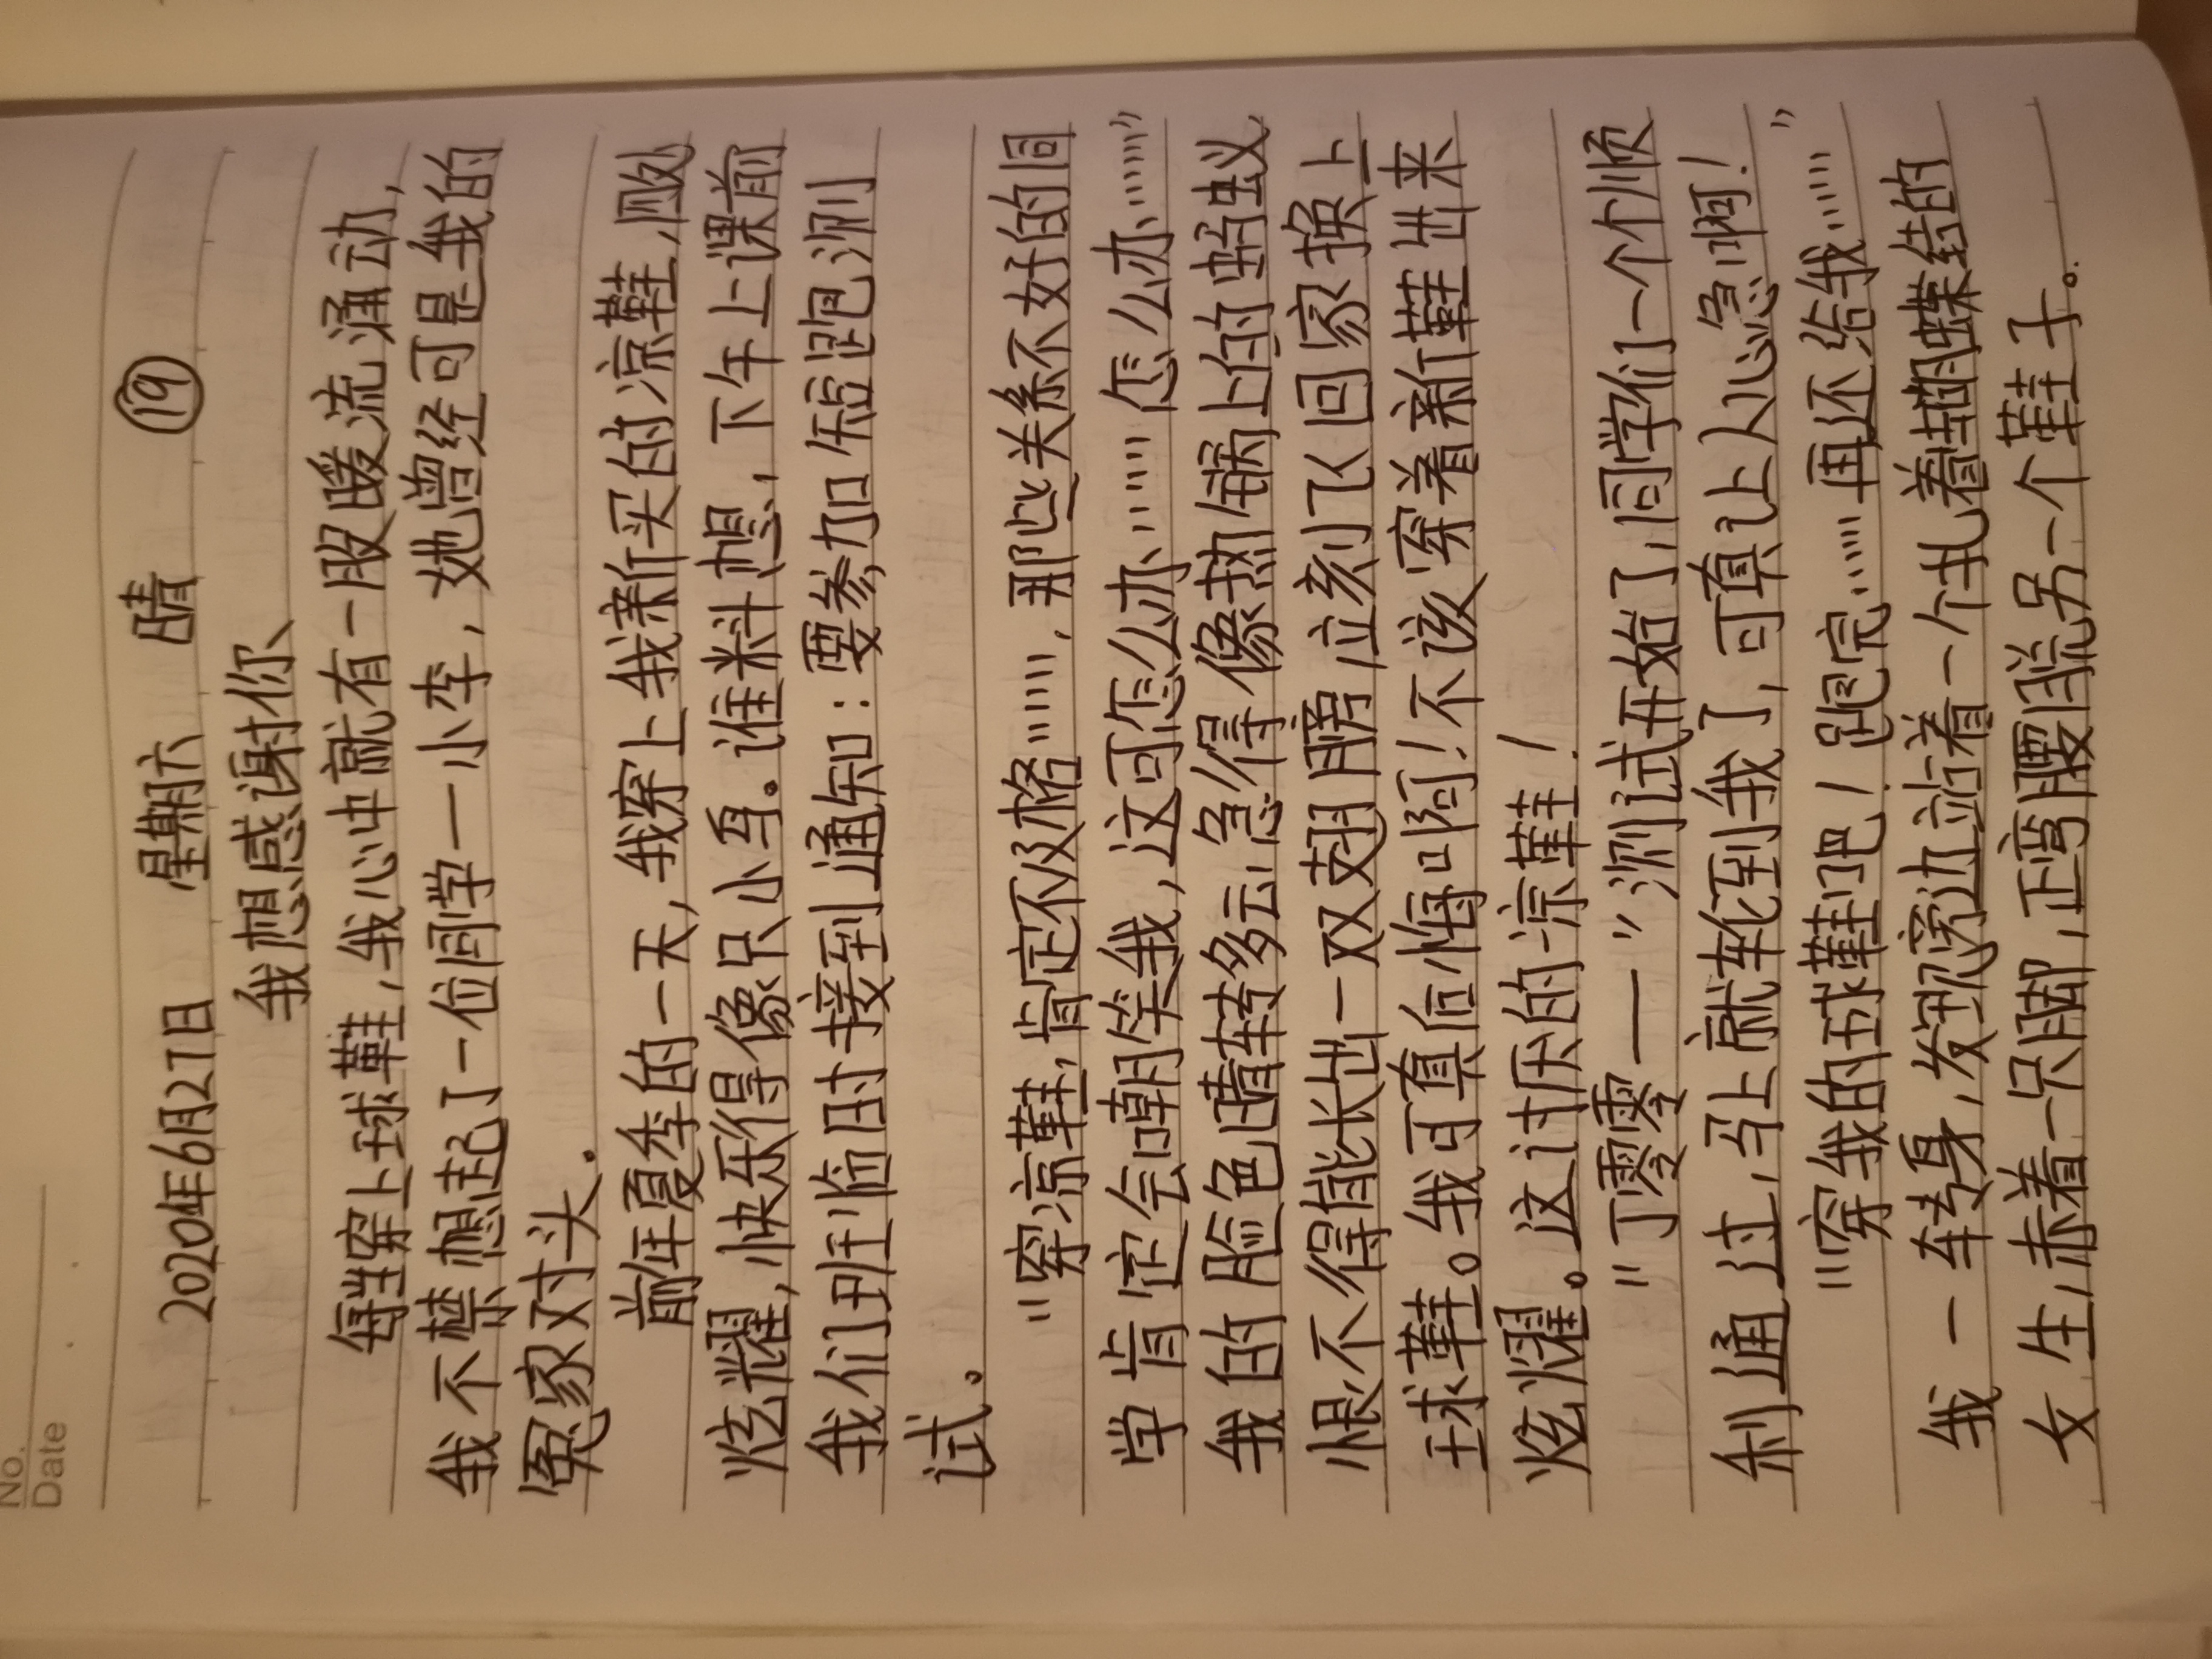 No.
Date
2020年6月27日 星期六 晴 ⑲
我想感谢你
每当穿上球鞋,我心中就有一股暖流涌动,
我不禁想起了一位同学—小李,她曾经可是我的
冤家对头.
前年夏季的一天,我穿上我新买的凉鞋,到处
炫耀,快乐得像只小鸟。谁料想,下午上课前
我们班临时接到通知:要参加短跑测
试。
"穿凉鞋,肯定不及格……,那些关系不好的同
学肯定会嘲笑我,这可怎么办……怎么办……"
我的脸色晴转多云,急得像热锅上的蚂蚁,
恨不得能长出一双翅膀立刻飞回家换上
球鞋。我可真后悔啊!不该穿着新鞋出来
炫耀。这讨厌的凉鞋!
"丁零零—"测试开始了,同学们一个个顺
利通过,马上就轮到我了,可真让人心急啊!
"穿我的球鞋吧!跑完……再还给我……"
我一转身,发现旁边站着一个扎着蝴蝶结的
女生,赤着一只脚,正弯腰脱另一个鞋子。